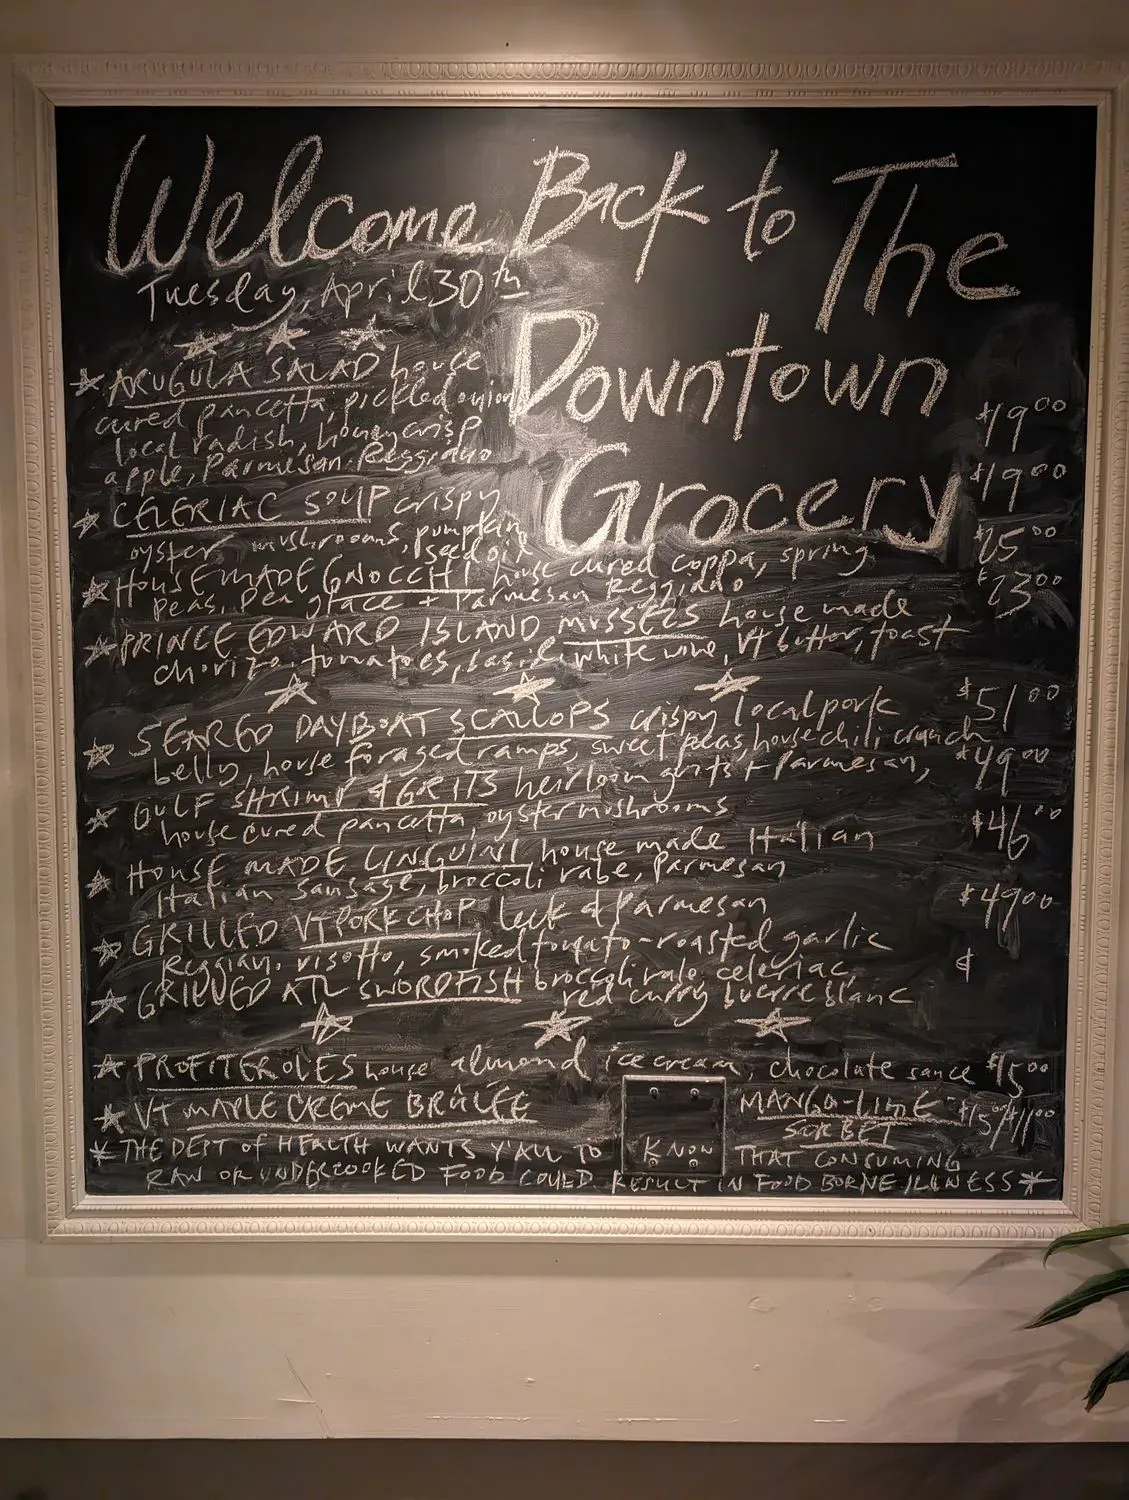 Welcome Back to The
Downtown
Grocery
Tuesday, April 30th
ARUGULA SALAD house
cured pancetta, pickled onion
local radish, honeycrisp
apple, Parmesan Reggiano
$19.00
CELERIAC SOUP crispy
oyster mushrooms, pumpkin
seed oil
$19.00
HOUSEMADE GNOCCHI house cured coppa, spring
peas, pea + Parmesan Reggiano
$25.00
PRINCE EDWARD ISLAND MUSSELS house made
chorizo, tomatoes, basil, white wine, VT butter, toast
$23.00
SEARED DAYBOAT SCALLOPS crispy local pork
belly, house foraged ramps, sweet peas, house chili crunch
$51.00
GULF SHRIMP & GRITS heirloom grits + Parmesan,
house cured pancetta, oyster mushrooms
$49.00
HOUSE MADE LINGUINI house made Italian
Italian sausage, broccoli rabe, Parmesan
$46.00
GRILLED VT PORK CHOP leek & Parmesan
Reggian. risotto, smoked tomato-roasted garlic
$49.00
GRILLED ATL SWORDFISH broccoli rabe, celeriac,
red curry buerre blanc
$
PROFITEROLES house almond ice cream, chocolate sauce $15.00
VT MAPLE CRÈME BRÛLÉE MANGO-LIME
SORBET
* THE DEPT OF HEALTH WANTS Y'ALL TO KNOW THAT CONSUMING
RAW OR UNDERCOOKED FOOD COULD RESULT IN FOOD BORNE ILLNESS *